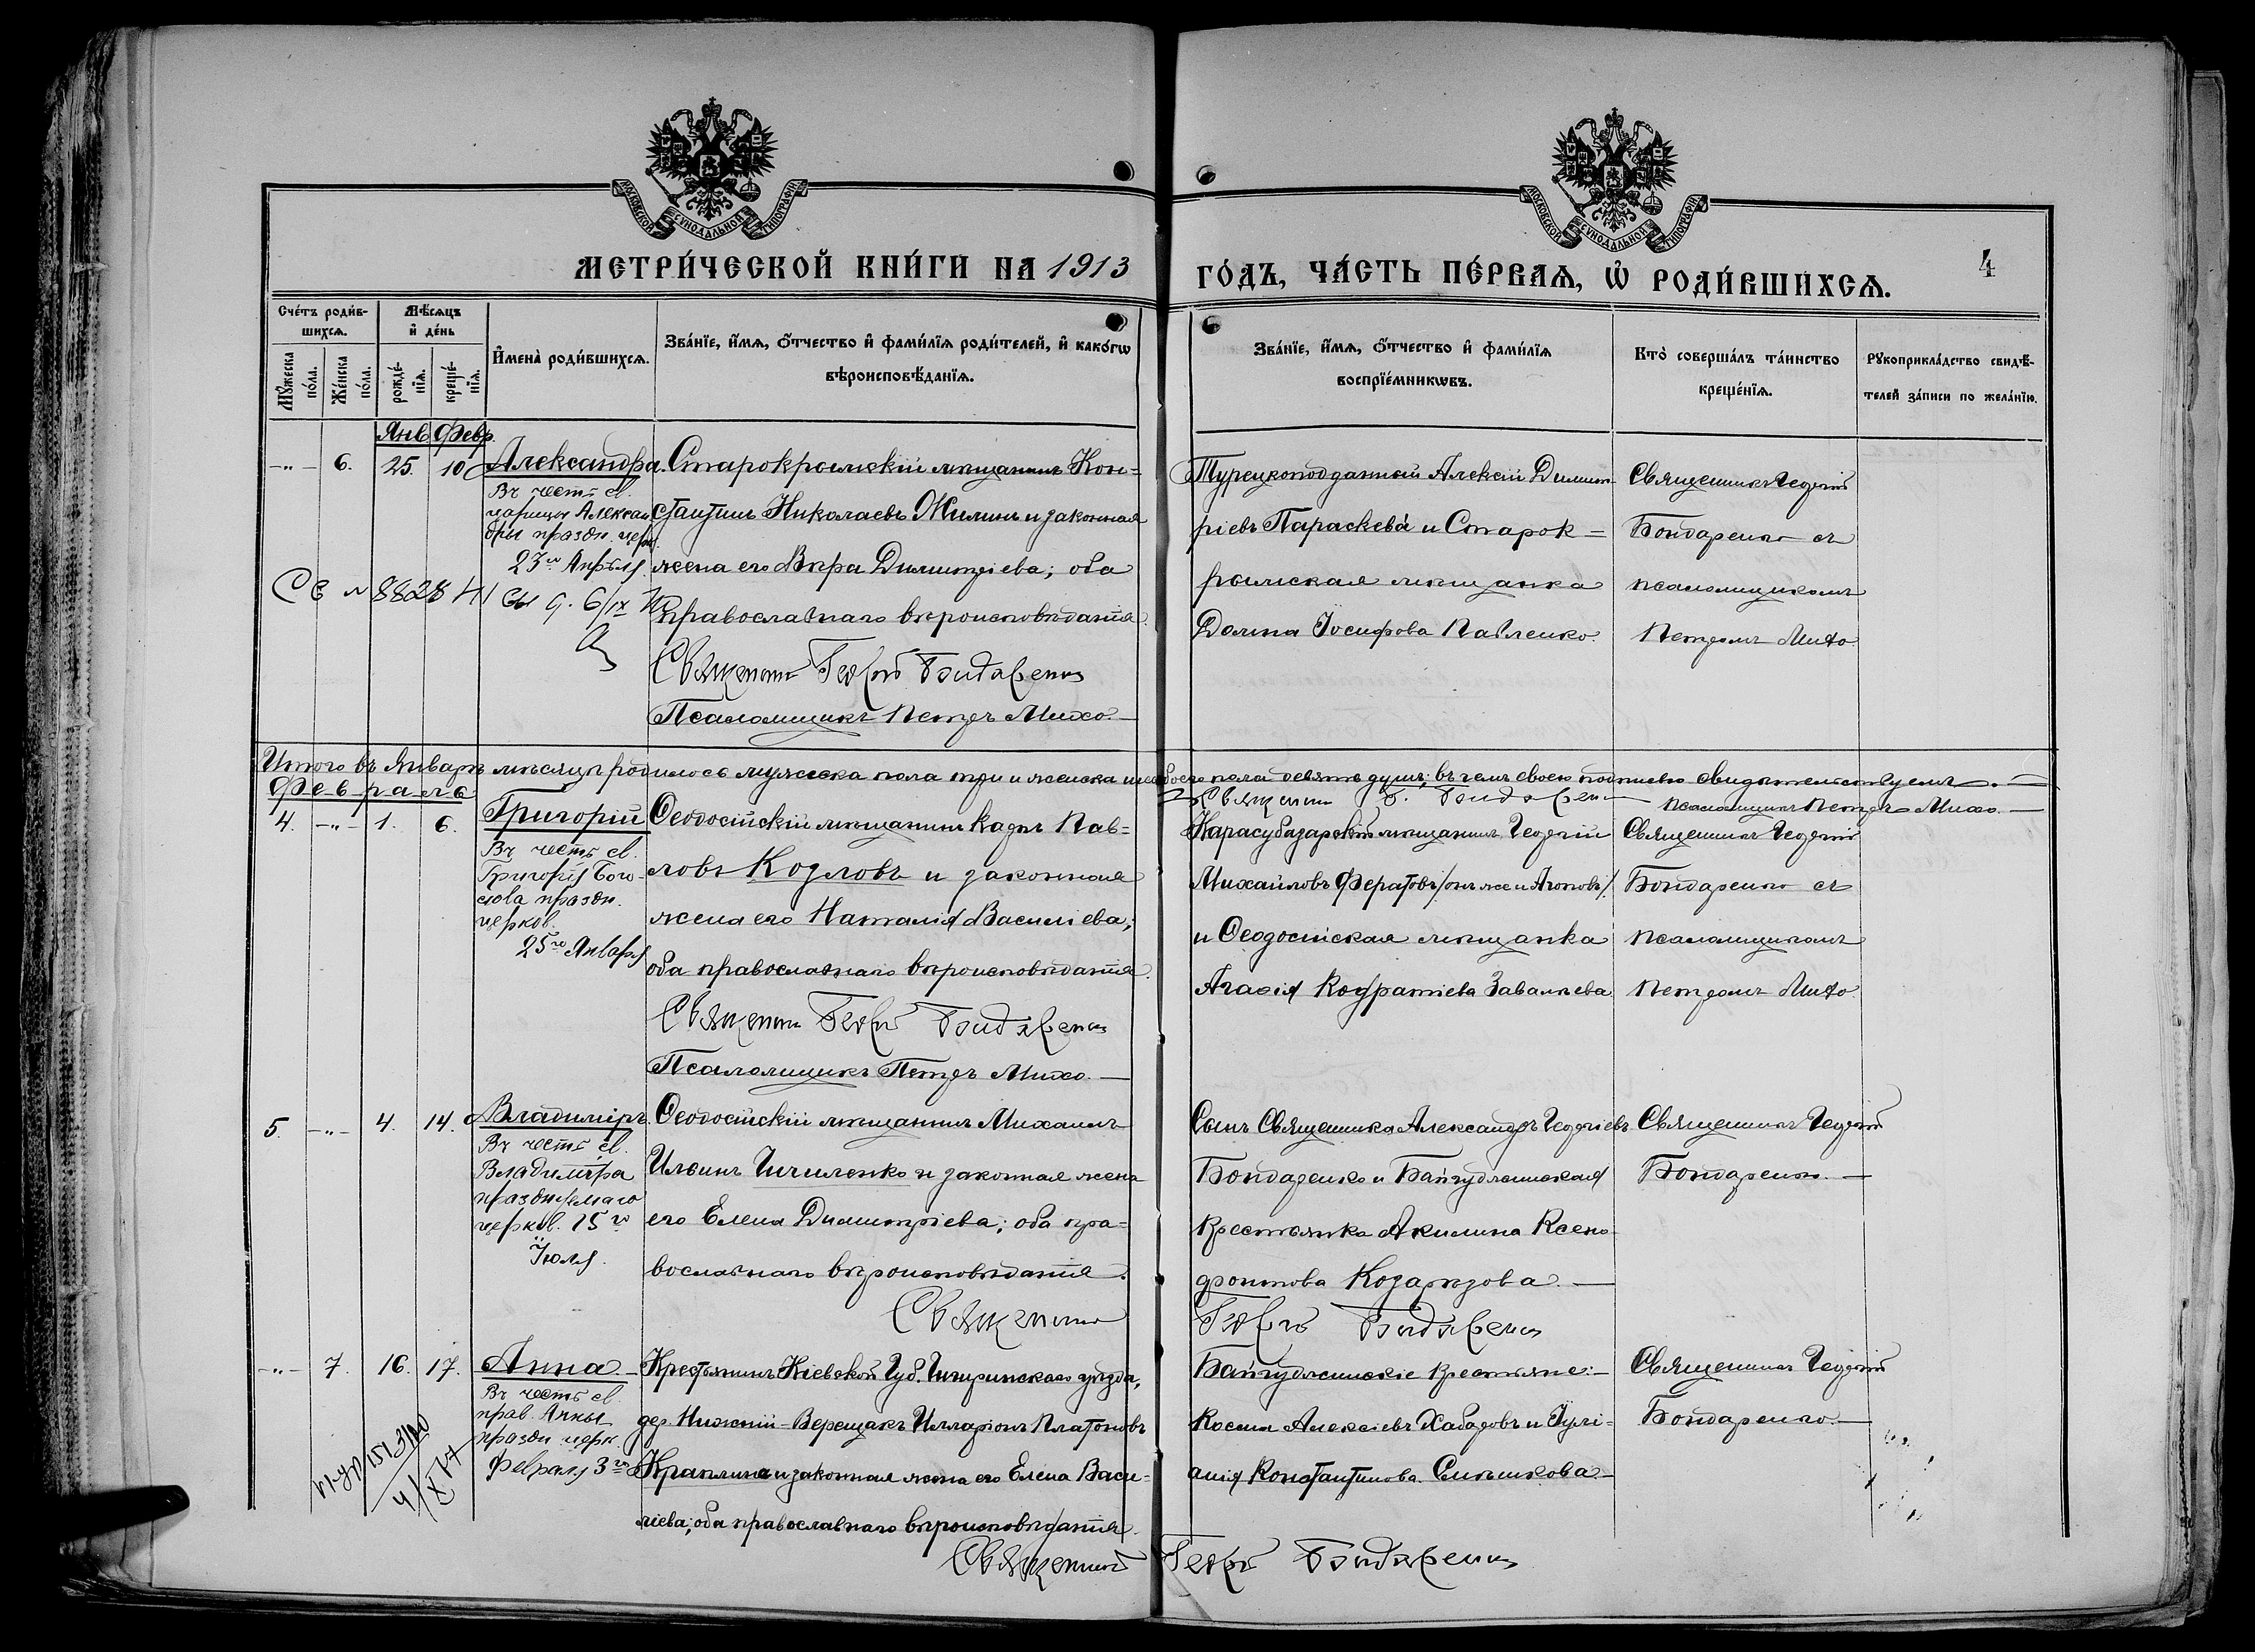 МОСКОВСКОЙ СѴНОДАЛЬНОЙ ТИПОГРАФІИ
МОСКОВСКОЙ СѴНОДАЛЬНОЙ ТИПОГРАФІИ
МЕТРИ́ЧЕСКОЙ КНИ́ГИ НА 1913
ГО́ДЪ, ЧА́СТЬ ПЕ́РВАѦ, Ѽ РОДИ́ВШИХСѦ.
4
Сче́тъ роди́в-
шихсѧ.
Мꙋ́жеска
по́ла.
Же́нска
по́ла.
Мѣ́сѧцъ
и҆ де́нь
рожде́-
нїѧ.
креще́-
нїѧ.
И҆мена̀ роди́вшихсѧ.
Зва́нїе, и҆́мѧ, ѻ҆́тчество и҆ фами́лїѧ роди́телей, и҆ како́гѡ
вѣроисповѣ́данїѧ.
Зва́нїе, и҆́мѧ, ѻ҆́тчество и҆ фами́лїѧ
воспрїе́мникѡвъ.
Кто̀ соверша́лъ та́инство
креще́нїѧ.
Рꙋкоприкла́дство свидѣ́-
телей за́писи по жела́нїю.
Янв. Февр.
-"- 6. 25. 10
Александра.
Въ честь св.
царицы Алексан
дры праздн. церк.
23го Апрѣля.
Старокрымскій мѣщанинъ Кон=
стантинъ Николаевъ Жилинъ и законная
жена его Вѣра Димитріева; оба
православнаго вѣроисповѣданія.
Священникъ Георгій Бондаренко
Псаломщикъ Петръ Михо.—
Турецкоподданный Алексій Димит-
ріевъ Параскева и Старок=
рымская мѣщанка
Домна Іосифова Павленко.
Священникъ Георгій
Бондаренко съ
псаломщикомъ
Петромъ Михо.
Итого въ Январѣ мѣсяцѣ родилось мужеска пола три и женска шесть обоего пола девять душъ; въ чемъ своею подписью свидѣтельствуемъ.—
Священникъ Г. Бондарен— Псаломщикъ Петръ Михо.—
Февраль
4. -"- 1. 6.
Григорій
Въ честь св.
Григорія Бого-
слова праздн.
церков.
25го Января
Ѳеодосійскій мѣщанинъ Пав=
ловъ Козловъ и законная
жена его Наталія Василіева;
оба православнаго вѣроисповѣданія.
Священникъ Георгій Бондаренко
Псаломщикъ Петръ Михо.—
Карасубазарскій мѣщанинъ Георгій
Михаиловъ Фератовъ /онъ же и
и Ѳеодосійская мѣщанка
Агаѳія Кодратіева
Священникъ Георгій
Бондаренко съ
псаломщикомъ
Петромъ Михо.
5. -"- 4. 14.
Владиміръ.
Въ честь св.
Владиміра
празднуемаго
церков. 15го
Іюля.
Ѳеодосійскій мѣщанинъ Михаилъ
Ильинъ Чичиленко и законная жена
его Елена Димитріева; оба пра=
вославнаго вѣроисповѣданія.
Священникъ Георгій Бондаренко
Сынъ Священника Александръ Георгіевъ
Бондаренко и
крестьянка Акилина Ксено-
фонтова
Священникъ Георгій
Бондаренко.—
-"- 7. 16. 17.
Анна.—
Въ честь св.
прав. Анны
праздн. церк.
Февраля 3го
Крестьянинъ Кіевской Губ. Чигиринскаго уѣзда,
дер. Нижній-Верещакъ Илларіонъ Платоновъ
и законная жена его Елена Васи-
ліева; оба православнаго вѣроисповѣданія.
Священникъ Георгій Бондаренко
крестьяне:—
Косма Алексіевъ и Іулі-
анія Константинова
Священникъ Георгій
Бондаренко.—